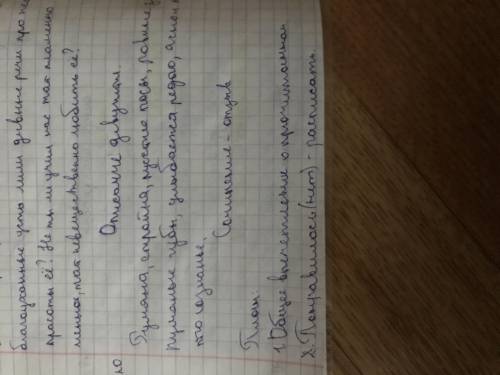 благоуханные уста лили дивные речи про не
красоты её? Не ты ли учил нас так пламенно
менно, так невещественно любить её?
но
Описание девушки.
Румяна, стройна, густые косы, ровные
румяные губы, улыбается редко,
Сочинение-отзыв
План:
1. Общее впечатление о прочитанном
2. Понравилась (нет) - расписать.